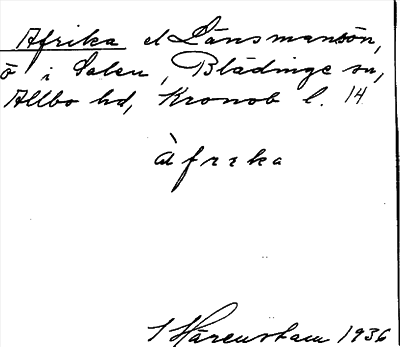 Afrika el Länsmansön,
ö i Salen, Blädinge sn,
Allbo hd, Kronob l. 14
àfrıka
I Härenstam 1936